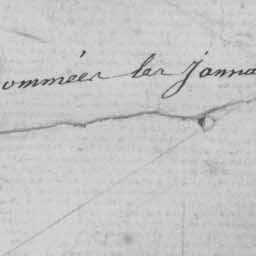 ommées les janna